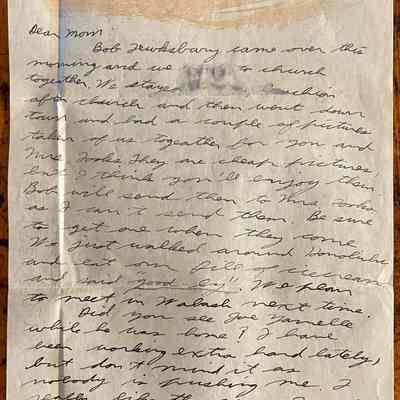 Dear Mom
Bob Tewksbary came over this
morning and we to church
together. We stayed
after church and then went down
town and had a couple of pictures
taken of us togeather for you and
Mrs. They are cheap pictures
but I think you'll enjoy them
Bob will send them to Mrs.
as I can't send them. Be sure
to get one when they come
We just walked around Honolulu
and eat our fill of icecream
and said "good by". We plan
to meet in Wabash next time.
Did you see Joe
while he was home? I have
been working extra hard lately,
but don't mind it as
nobody is pushing me. I
really like